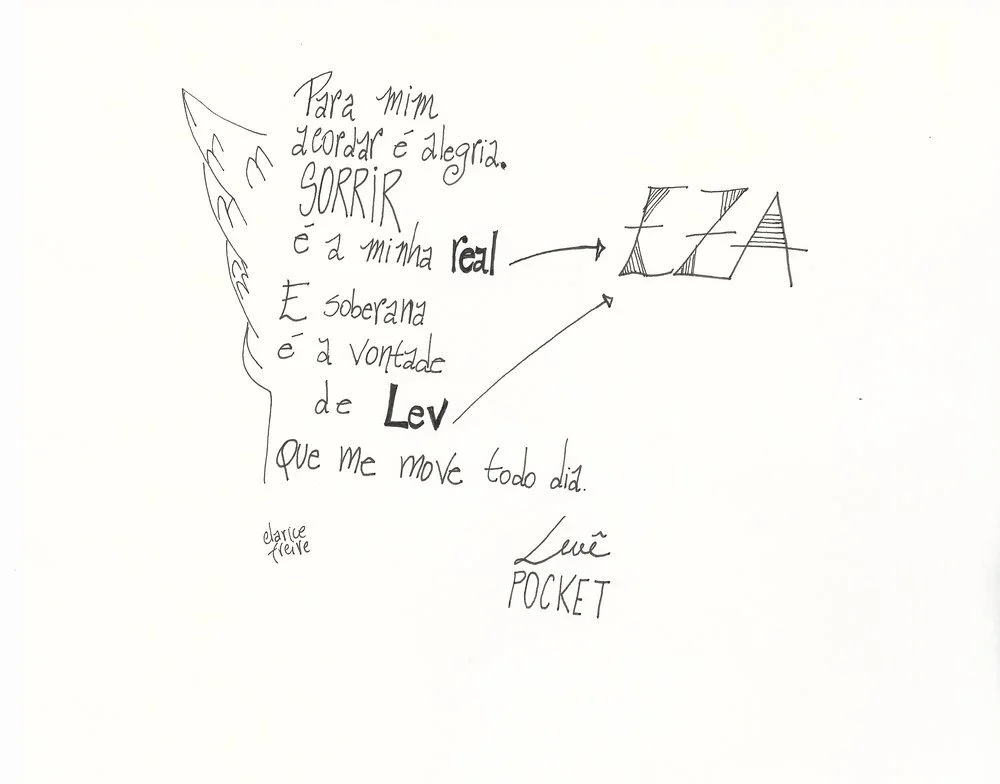 Para mim
acordar é alegria.
SORRIR
é a minha real
EZA
E soberana
é a vontade
de Lev
Que me move todo dia.
clarice
freire
Levê
POCKET